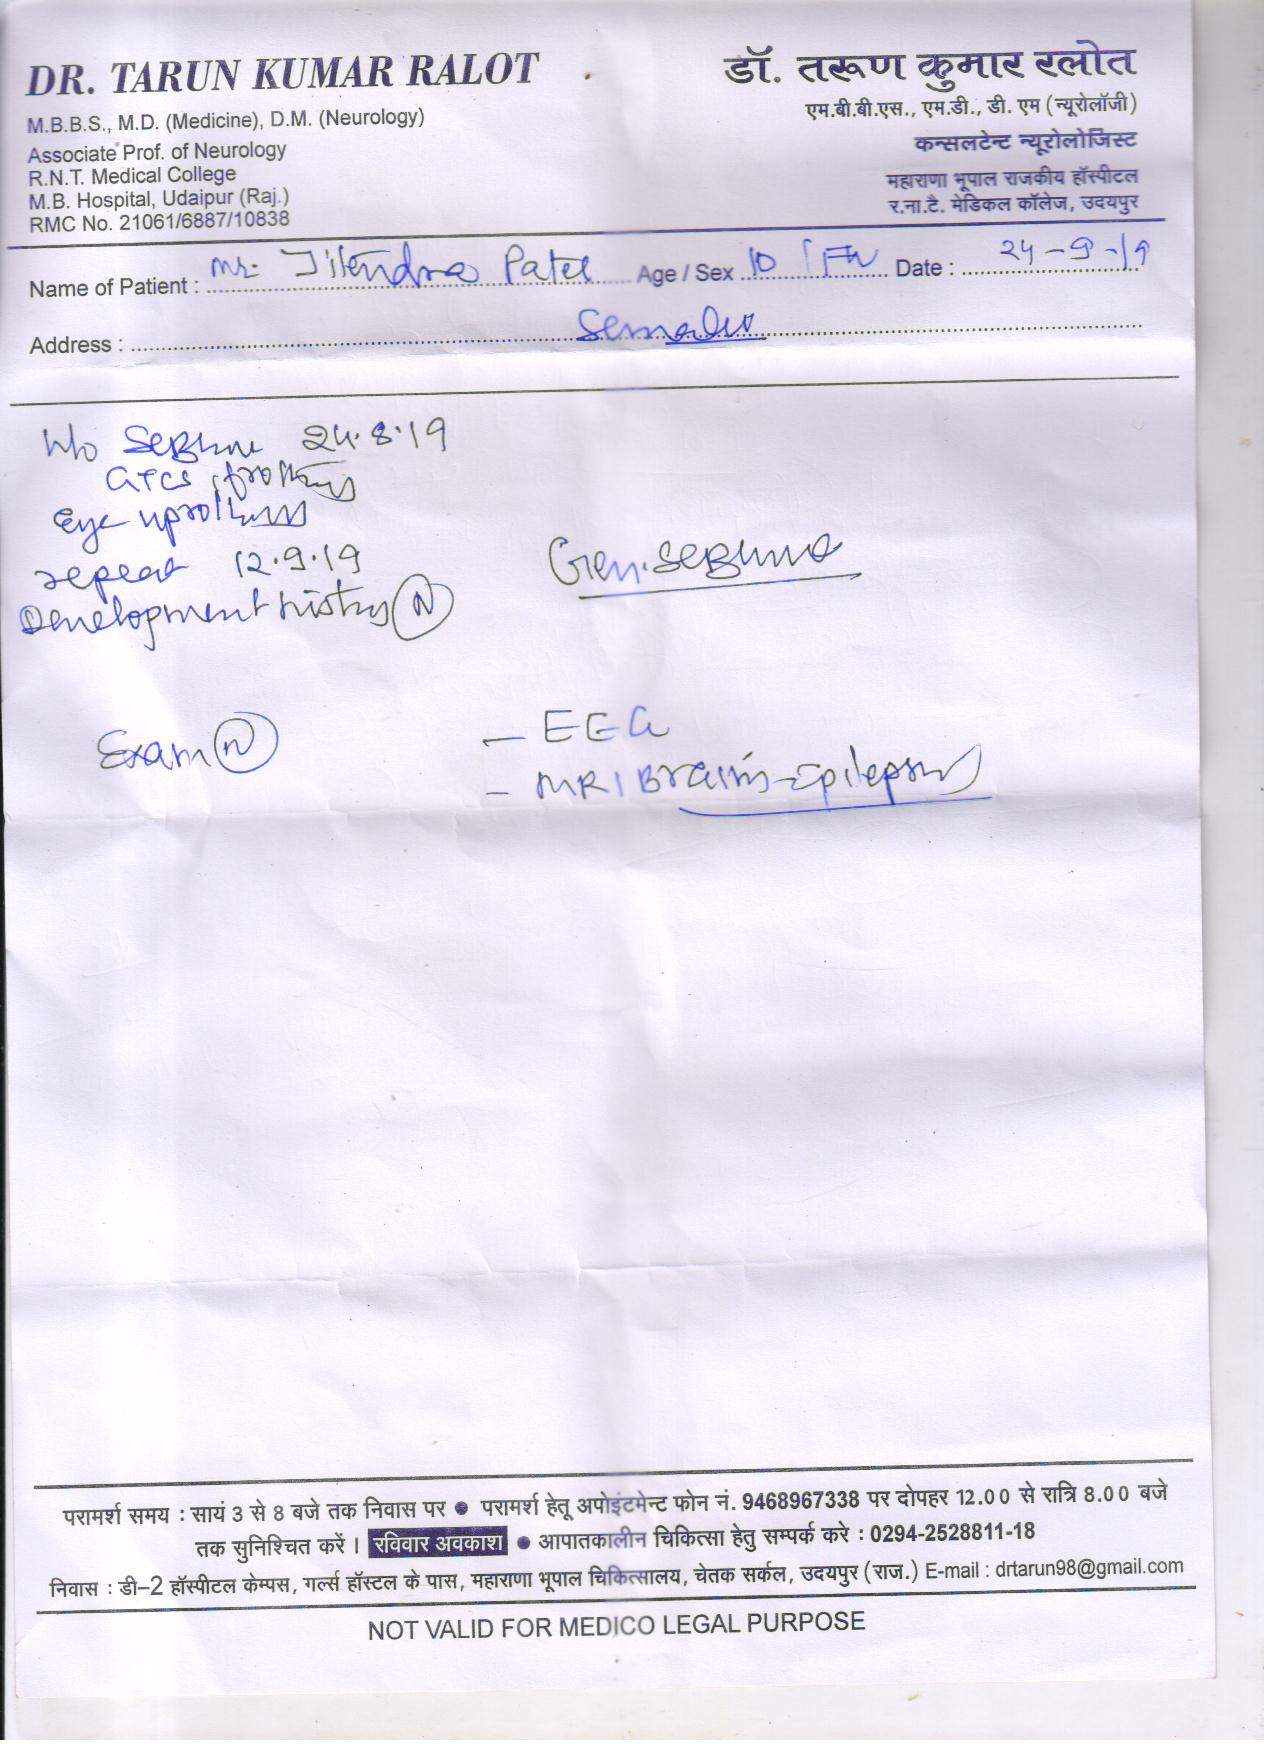 DR. TARUN KUMAR RALOT
M.B.B.S., M.D. (Medicine), D.M. (Neurology)
Associate Prof. of Neurology
R.N.T. Medical College
M.B. Hospital, Udaipur (Raj.)
RMC No. 21061/6887/10838
डॉ. तरूण कुमार रलोत
एम.बी.बी.एस., एम.डी., डी. एम (न्यूरोलॉजी)
कन्सलटेन्ट न्यूरोलोजिस्ट
महाराणा भूपाल राजकीय हॉस्पीटल
र.ना.टै. मेडिकल कॉलेज, उदयपुर
Name of Patient : Mr. Jitendra Patel Age / Sex 10 Date : 24-9-19
Address :
H/o Seizure 24.8.19
GTCS, frothing
Eye uprolling
repeat 12.9.19
Development history N
Gen. seizure
Exam N
- EEG
- MRI Brain - Epilepsy
परामर्श समय : सायं 3 से 8 बजे तक निवास पर ● परामर्श हेतू अपोइंटमेन्ट फोन नं. 9468967338 पर दोपहर 12.00 से रात्रि 8.00 बजे
तक सुनिश्चित करें । रविवार अवकाश ● आपातकालीन चिकित्सा हेतु सम्पर्क करे : 0294-2528811-18
निवास : डी-2 हॉस्पीटल केम्पस, गर्ल्स हॉस्टल के पास, महाराणा भूपाल चिकित्सालय, चेतक सर्कल, उदयपुर (राज.) E-mail : drtarun98@gmail.com
NOT VALID FOR MEDICO LEGAL PURPOSE